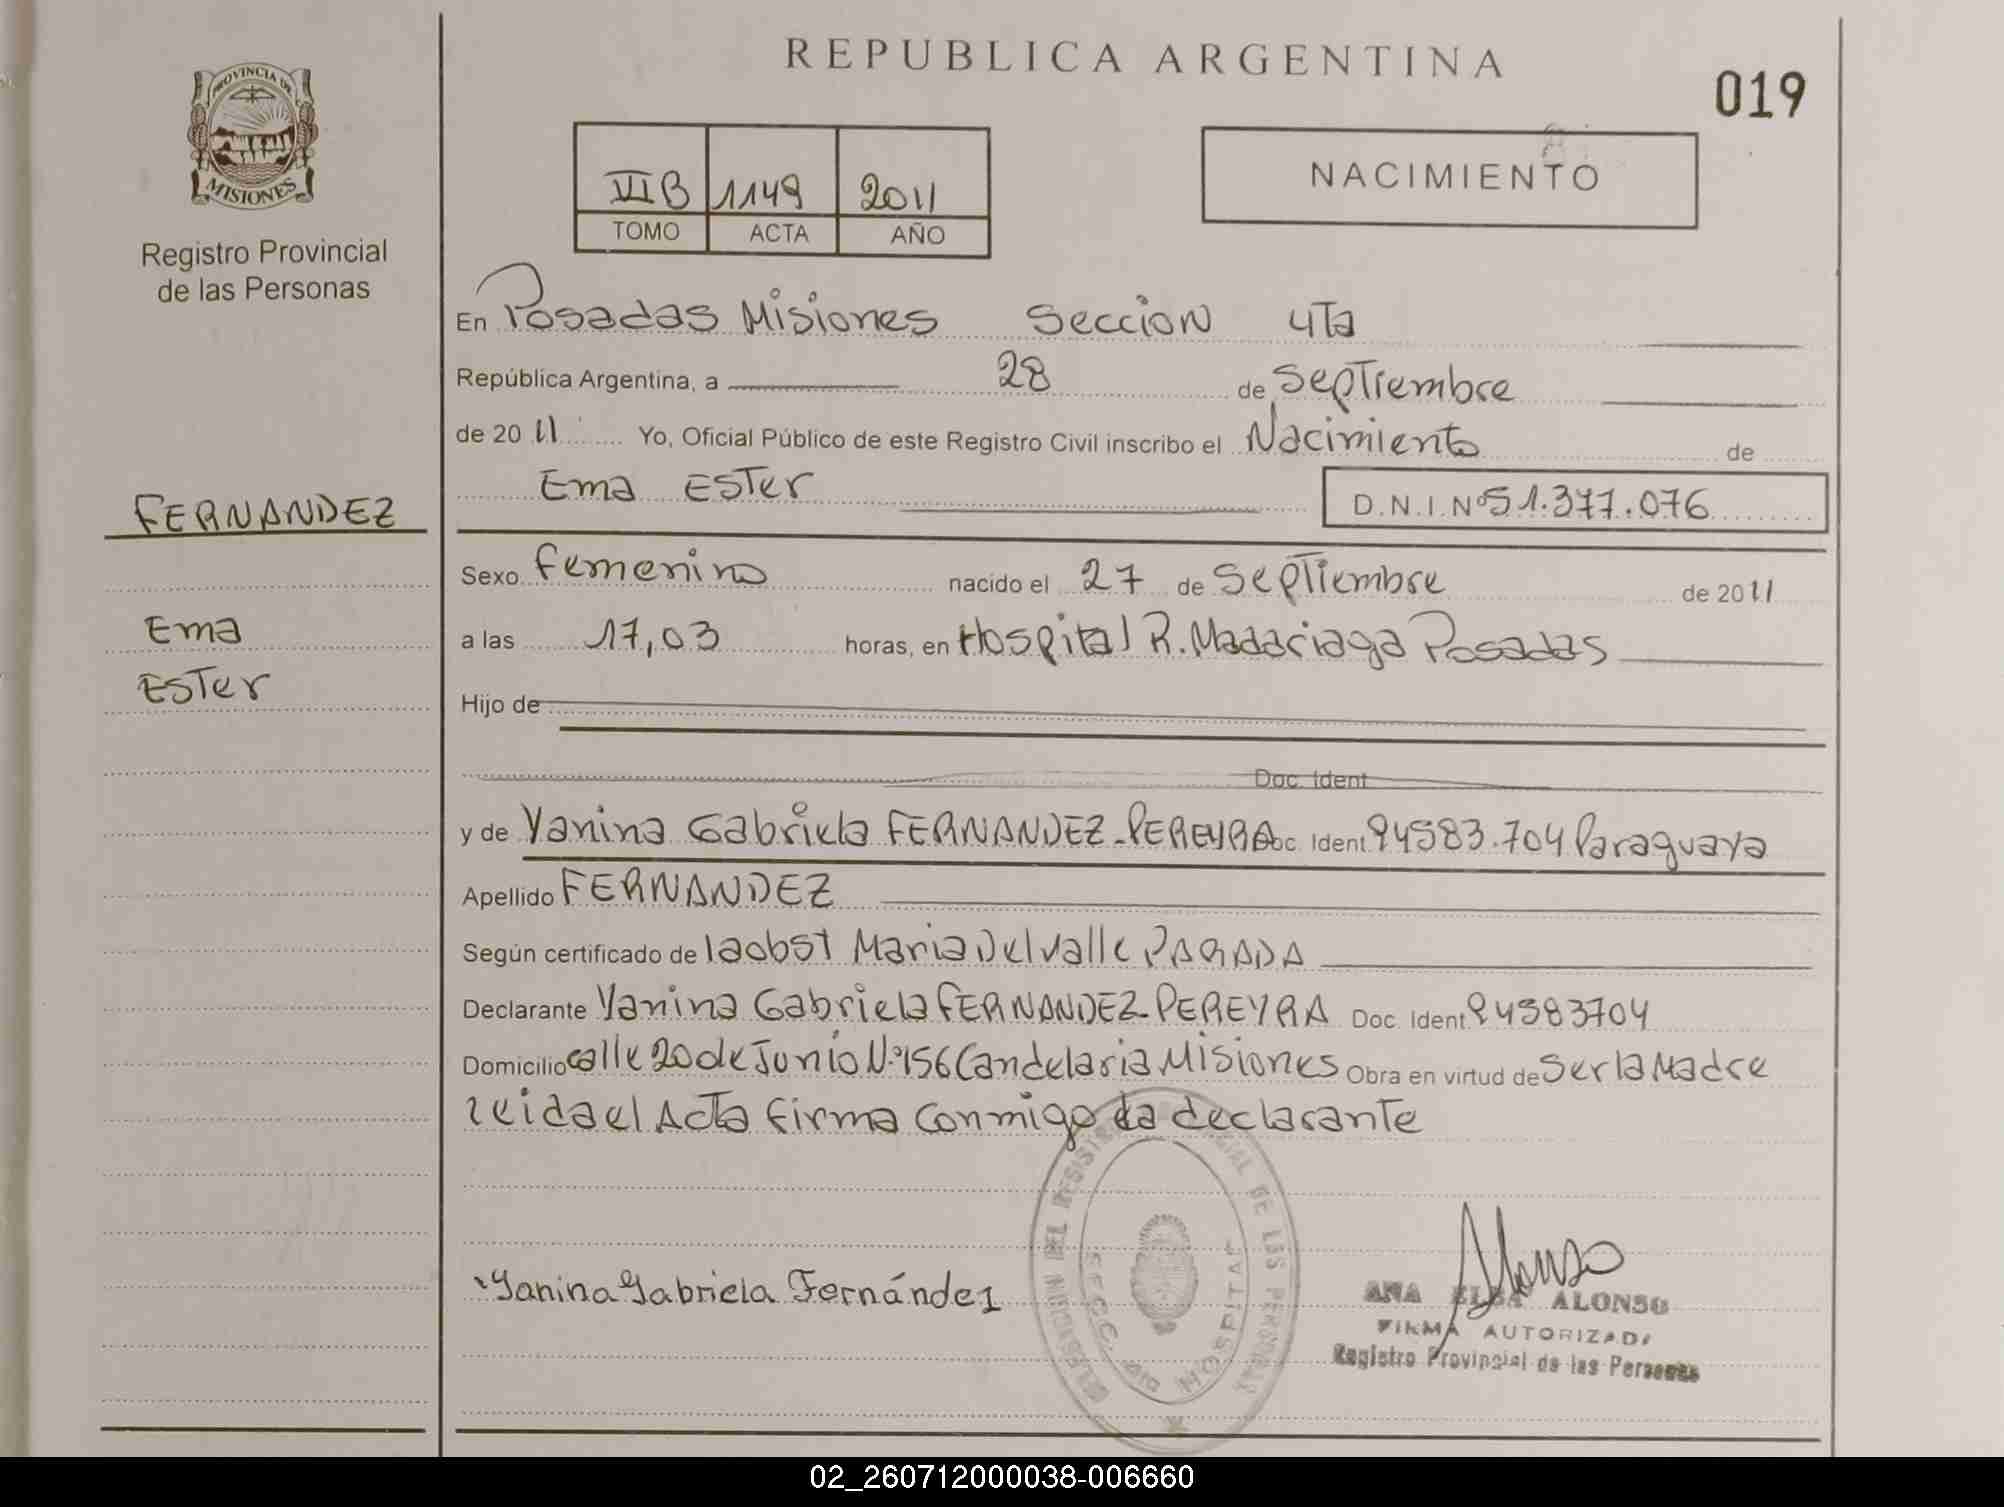 REPUBLICA ARGENTINA
019
PROVINCIA DE
MISIONES
Registro Provincial
de las Personas
VI B 1149 2011
TOMO ACTA AÑO
NACIMIENTO
En Posadas Misiones Seccion 4Ta
República Argentina, a 28 de Septiembre
de 2011 Yo, Oficial Público de este Registro Civil inscribo el Nacimiento de
Ema Ester D.N.I. Nº 51.377.076
FERNANDEZ
Ema
Ester
Sexo femenino nacido el 27 de Septiembre de 2011
a las 17,03 horas, en Hospital R. Madariaga Posadas
Hijo de
Doc. Ident
y de Yanina Gabriela FERNANDEZ-PEREYRA Doc. Ident 94583.704 Paraguaya
Apellido FERNANDEZ
Según certificado de la obst Maria Del Valle PARADA
Declarante Yanina Gabriela FERNANDEZ-PEREYRA Doc. Ident 94583704
Domicilio calle 20 de Junio Nº 156 Candelaria Misiones Obra en virtud de Ser la Madre
leida el Acta firma conmigo la declarante
Yanina Gabriela Fernández
Alonso
ANA ELSA ALONSO
FIRMA AUTORIZADA
Registro Provincial de las Personas
DE LAS PERSONAS
HOSPITAL
02_260712000038-006660